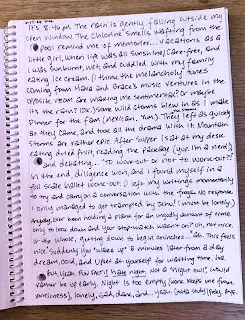 It's 8:46pm. The rain is gently falling outside my
open window. The chlorine smells wafting from the
pool remind me of memories... vacations as a
little girl, when life was all sunshine, care-free, and
I was sunburnt, wet, and cuddled with my family
eating ice cream. (I think the melancholy tunes
coming from Hana and Grace's music ventures in the
opposite room are making me sentimental? Or maybe
it's the rain? IDK) Some wild storms blew in as I made
Dinner for the fam (mexican. Yum) They left as quickly
as they came, and took all the drama with it. Mountain
Storms are rather epic. After supper I sat at my desk
eating dried fruit, reading the (yup, I'm a nerd)
and debating... "TO work-out or not to work-out??"
In the end, diligence won, and I found myself in a
full scale ballet work-out. (I left my writing momentarily
to try and join in a conversation with the frogs. No response.
I only managed to get trampled by Jethu! I must be lonely.)
Anyway, ever been holding a plank for an ungodly amount of time
only to look down and your stop-watch wasn't on? Uh, not nice.
or the worst, getting down to begin crunches... "Ah. This feels
nice." Suddenly you "wake up" 5 minutes later from a day
dream, cold, and upset at yourself for wasting time. ha.
but yeah. Fun fact: I hate night. Not a "night owl", would
rather be up early. Night is too empty (work keeps me from
loneliness), lonely, sad, dark, and... yeah. Gotta study. Hey